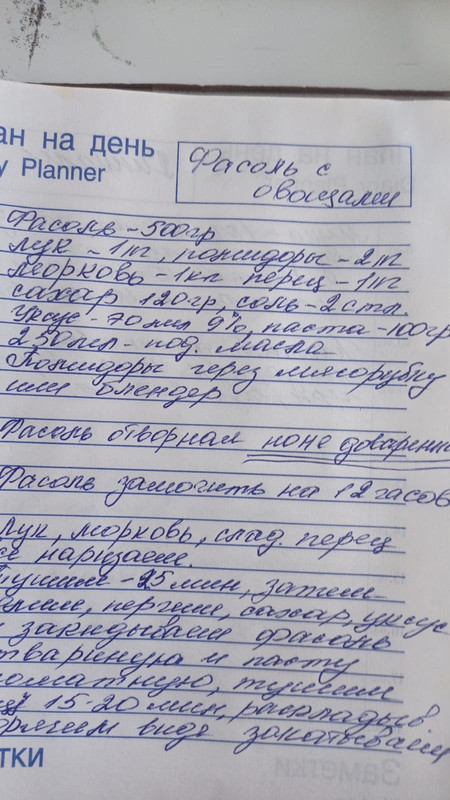 ан на день
y Planner
Фасоль с
овощами
Фасоль - 500гр
лук - 1кг, помидоры - 2кг
морковь - 1кг перец - 1кг
сахар 120гр, соль - 2 стл.
Уксус - 70 мл 9%, паста - 100гр
250 мл - под. масла
Помидоры через мясорубку
или блендер
Фасоль отворная
Фасоль замочить на 12 часов
Лук, морковь, слад. перец
се нарізаем.
тушим - 25 мин, затем
сахар, уксус
закидываем фасоль
тваринную и пасту
оматную, тушим
15-20 мин, расклядыв
орячем виде закатываем
тки